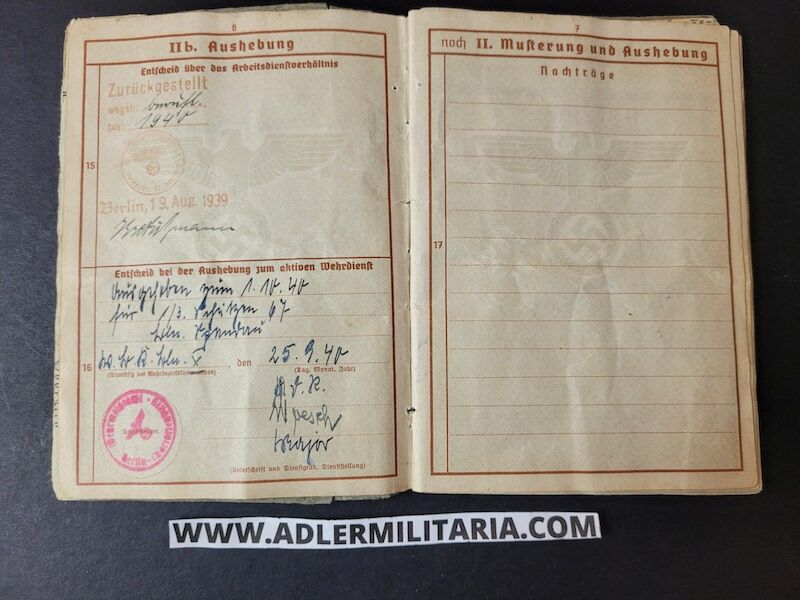 6
IIb. Aushebung
Entscheid über das Arbeitsdienstverhältnis
Zurückgestellt
wegen: berufl.
bis: 1940
15
Berlin, 19. Aug. 1939
Entscheid bei der Aushebung zum aktiven Wehrdienst
Ausgehoben zum 1.10.40
für 1/3. Schützen 67
bln. Spandau
16
W.B.K. bln. X, den 25.9.40
(Dienstsitz des Wehrbezirkskommandos) (Tag, Monat, Jahr)
Major
(Unterschrift und Dienstgrad, Dienststellung)
7
noch II. Musterung und Aushebung
Nachträge
17
WWW.ADLERMILITARIA.COM